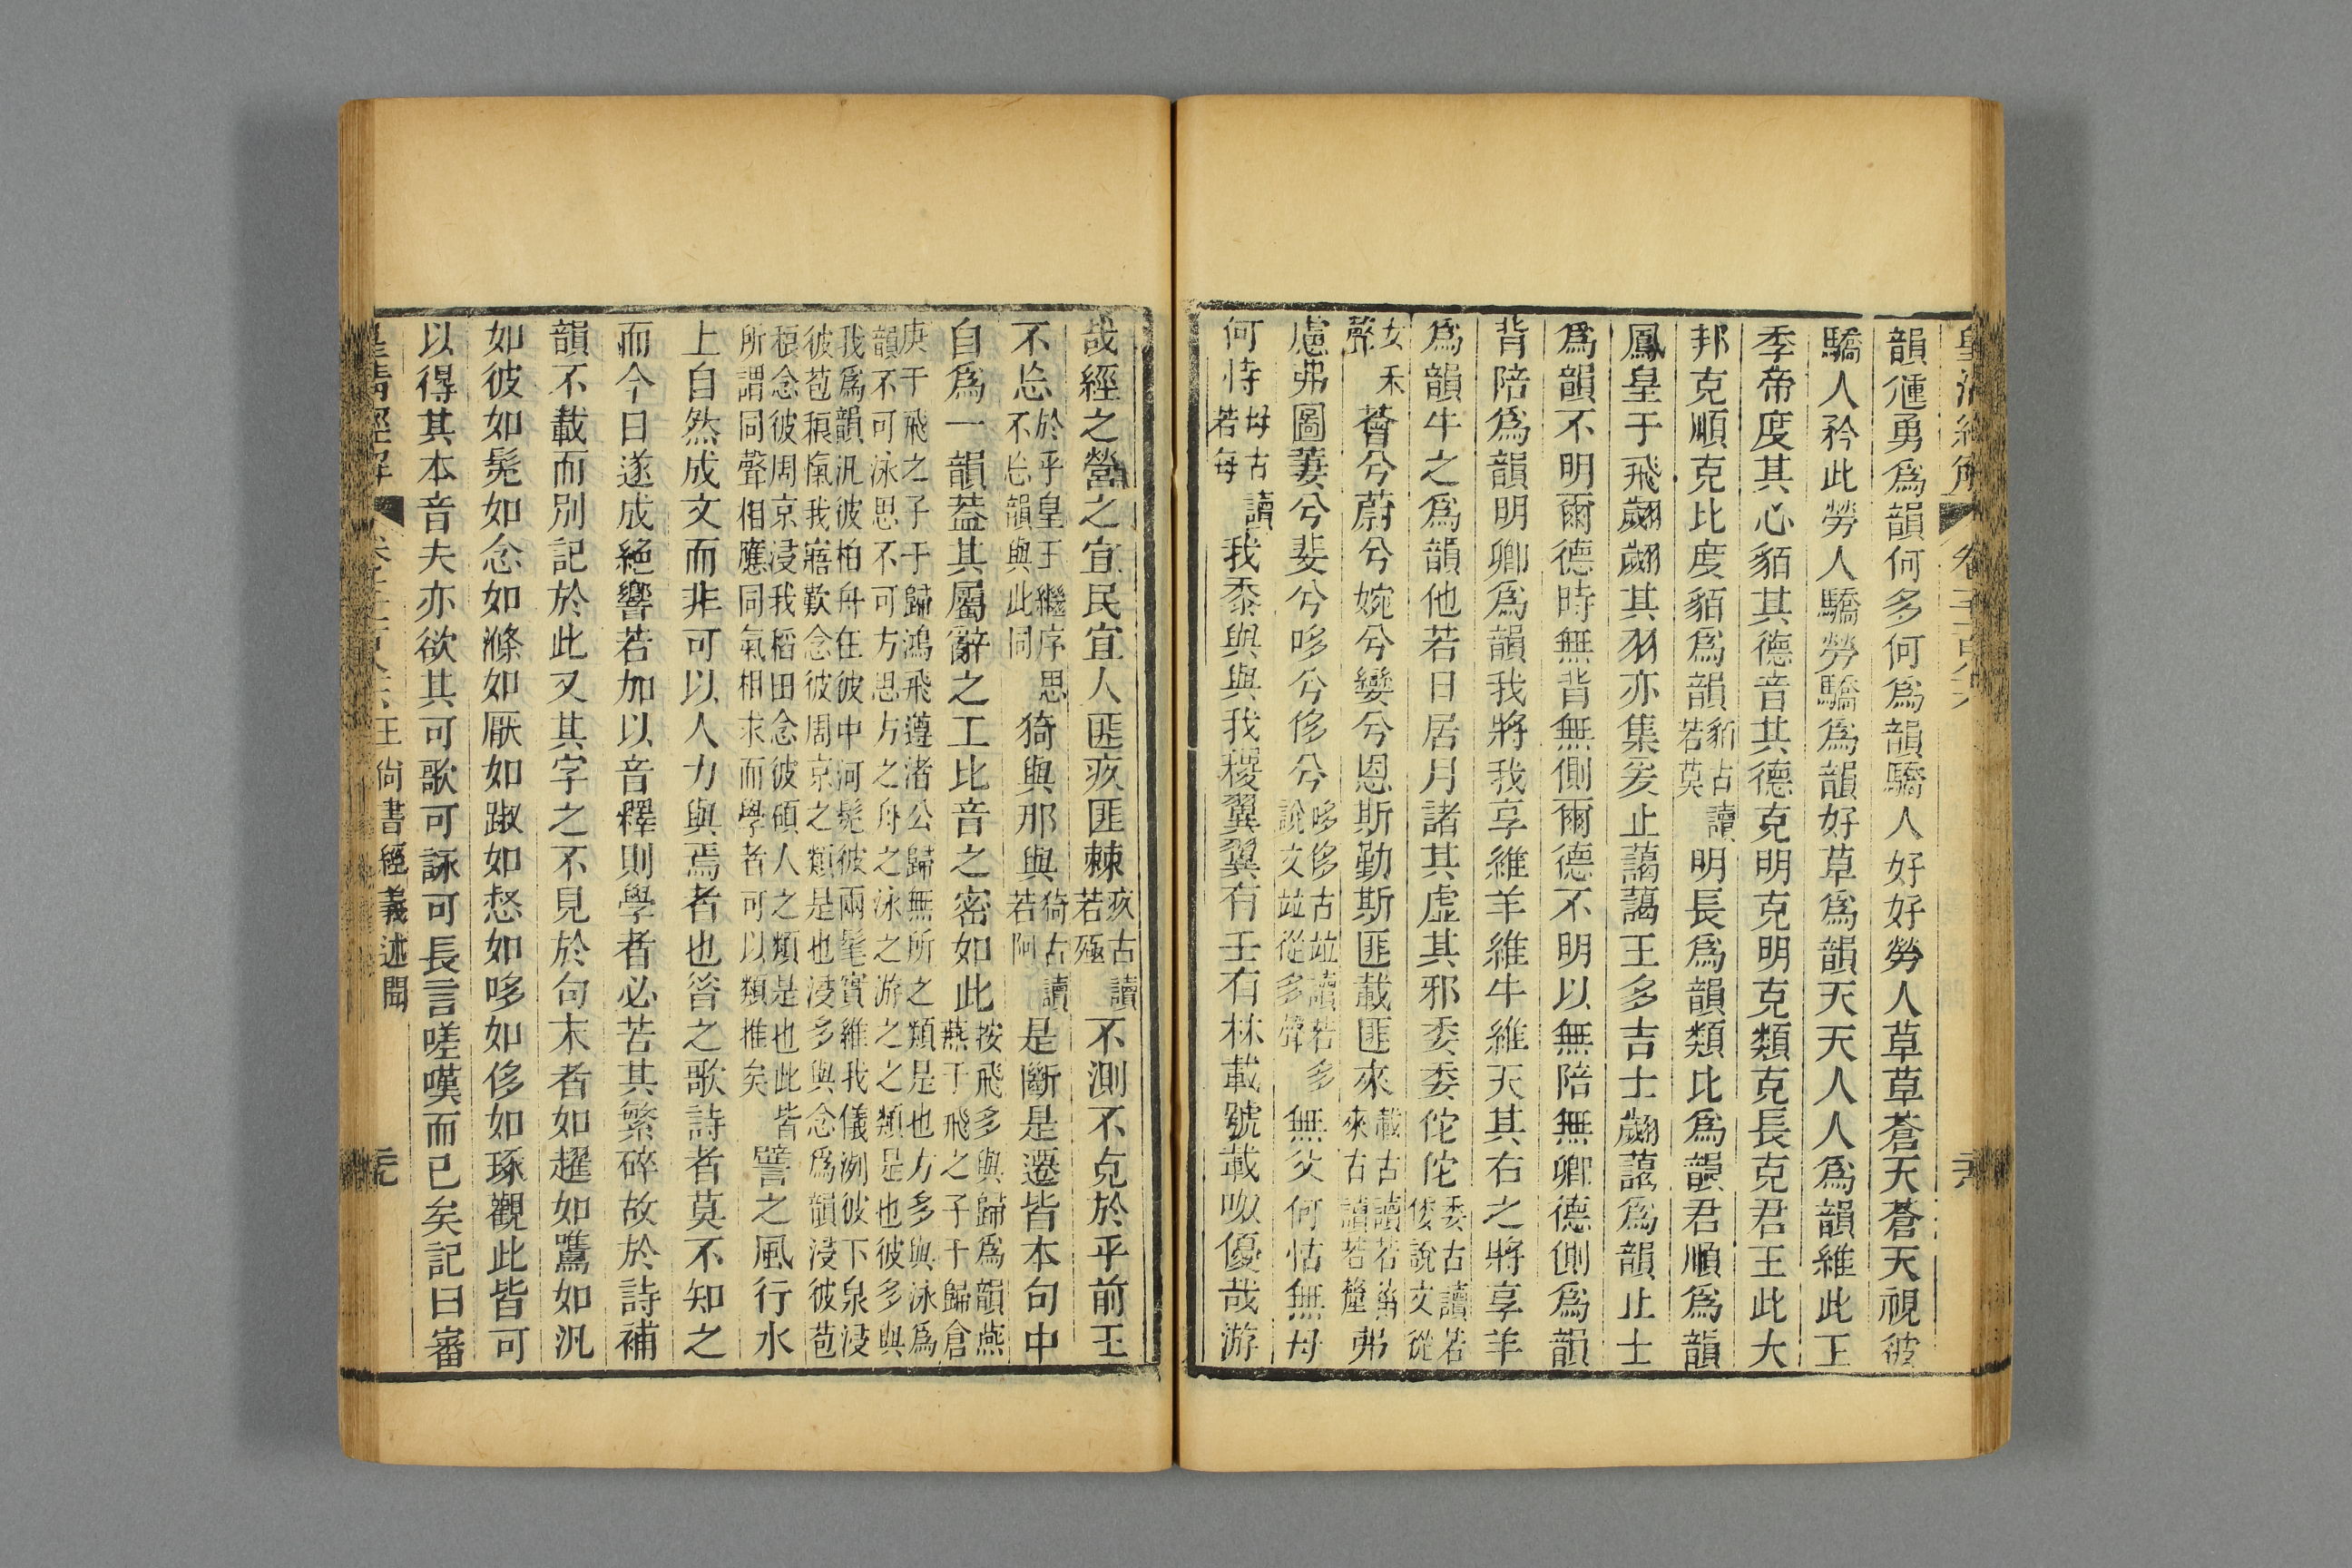 皇清經解 卷 六
韻㣫勇為韻何多何為韻驕人好好勞人草草蒼天蒼天視彼
驕人矜此勞人驕勞驕為韻好草為韻天天人人為韻維此王
季帝度其心貊其德音其德克明克明克類克長克君王此大
邦克順克比度貊為韻貊古讀若莫明長為韻類比為韻君順為韻
鳳皇于飛翽翽其羽亦集爰止藹藹王多吉士翽藹為韻止士
為韻不明爾德時無背無側爾德不明以無陪無卿德側為韻
背陪為韻明卿為韻我將我享維羊維牛維天其右之將享羊
為韻牛之為韻他若日居月諸其虛其邪委委佗佗委古讀若倭說文從
女禾聲薈兮蔚兮婉兮孌兮恩斯勤斯匪載匪來載古讀若菑來古讀若釐弗
慮弗圖萋兮斐兮哆兮侈兮哆侈古竝讀若多說文竝從多聲無父何怙無母
何恃母古讀若每我黍與與我稷翼翼有壬有林載號載呶優哉游
哉經之營之宜民宜人匪疚匪棘疚古讀若殛不測不克於乎前王
不忘於乎皇王繼序思不忘韻與此同猗與那與猗古讀若阿是斷是遷皆本句中
自為一韻葢其屬辭之工比音之密如此按飛多與歸為韻燕燕于飛之子于歸倉
庚于飛之子于歸鴻飛遵渚公歸無所之類是也方多與泳為韻不可泳思不可方思方之舟之泳之游之之類是也彼多與
我為韻汎彼柏舟在彼中河髧彼兩髦實維我儀洌彼下泉浸彼苞稂愾我寤歎念彼周京之類是也浸多與念為韻浸彼苞
稂念彼周京浸我稻田念彼碩人之類是也此皆所謂同聲相應同氣相求而學者可以類推矣譬之風行水
上自然成文而非可以人力與焉者也昝之歌詩者莫不知之
而今日遂成絕響若加以音釋則學者必苦其繁碎故於詩補
韻不載而別記於此又其字之不見於句末者如趯如鷕如汎
如彼如髧如念如滌如厭如踧如惄如哆如侈如琢觀此皆可
以得其本音夫亦欲其可歌可詠可長言嗟嘆而已矣記曰審
皇清經解 卷 王尙書經義述聞 元